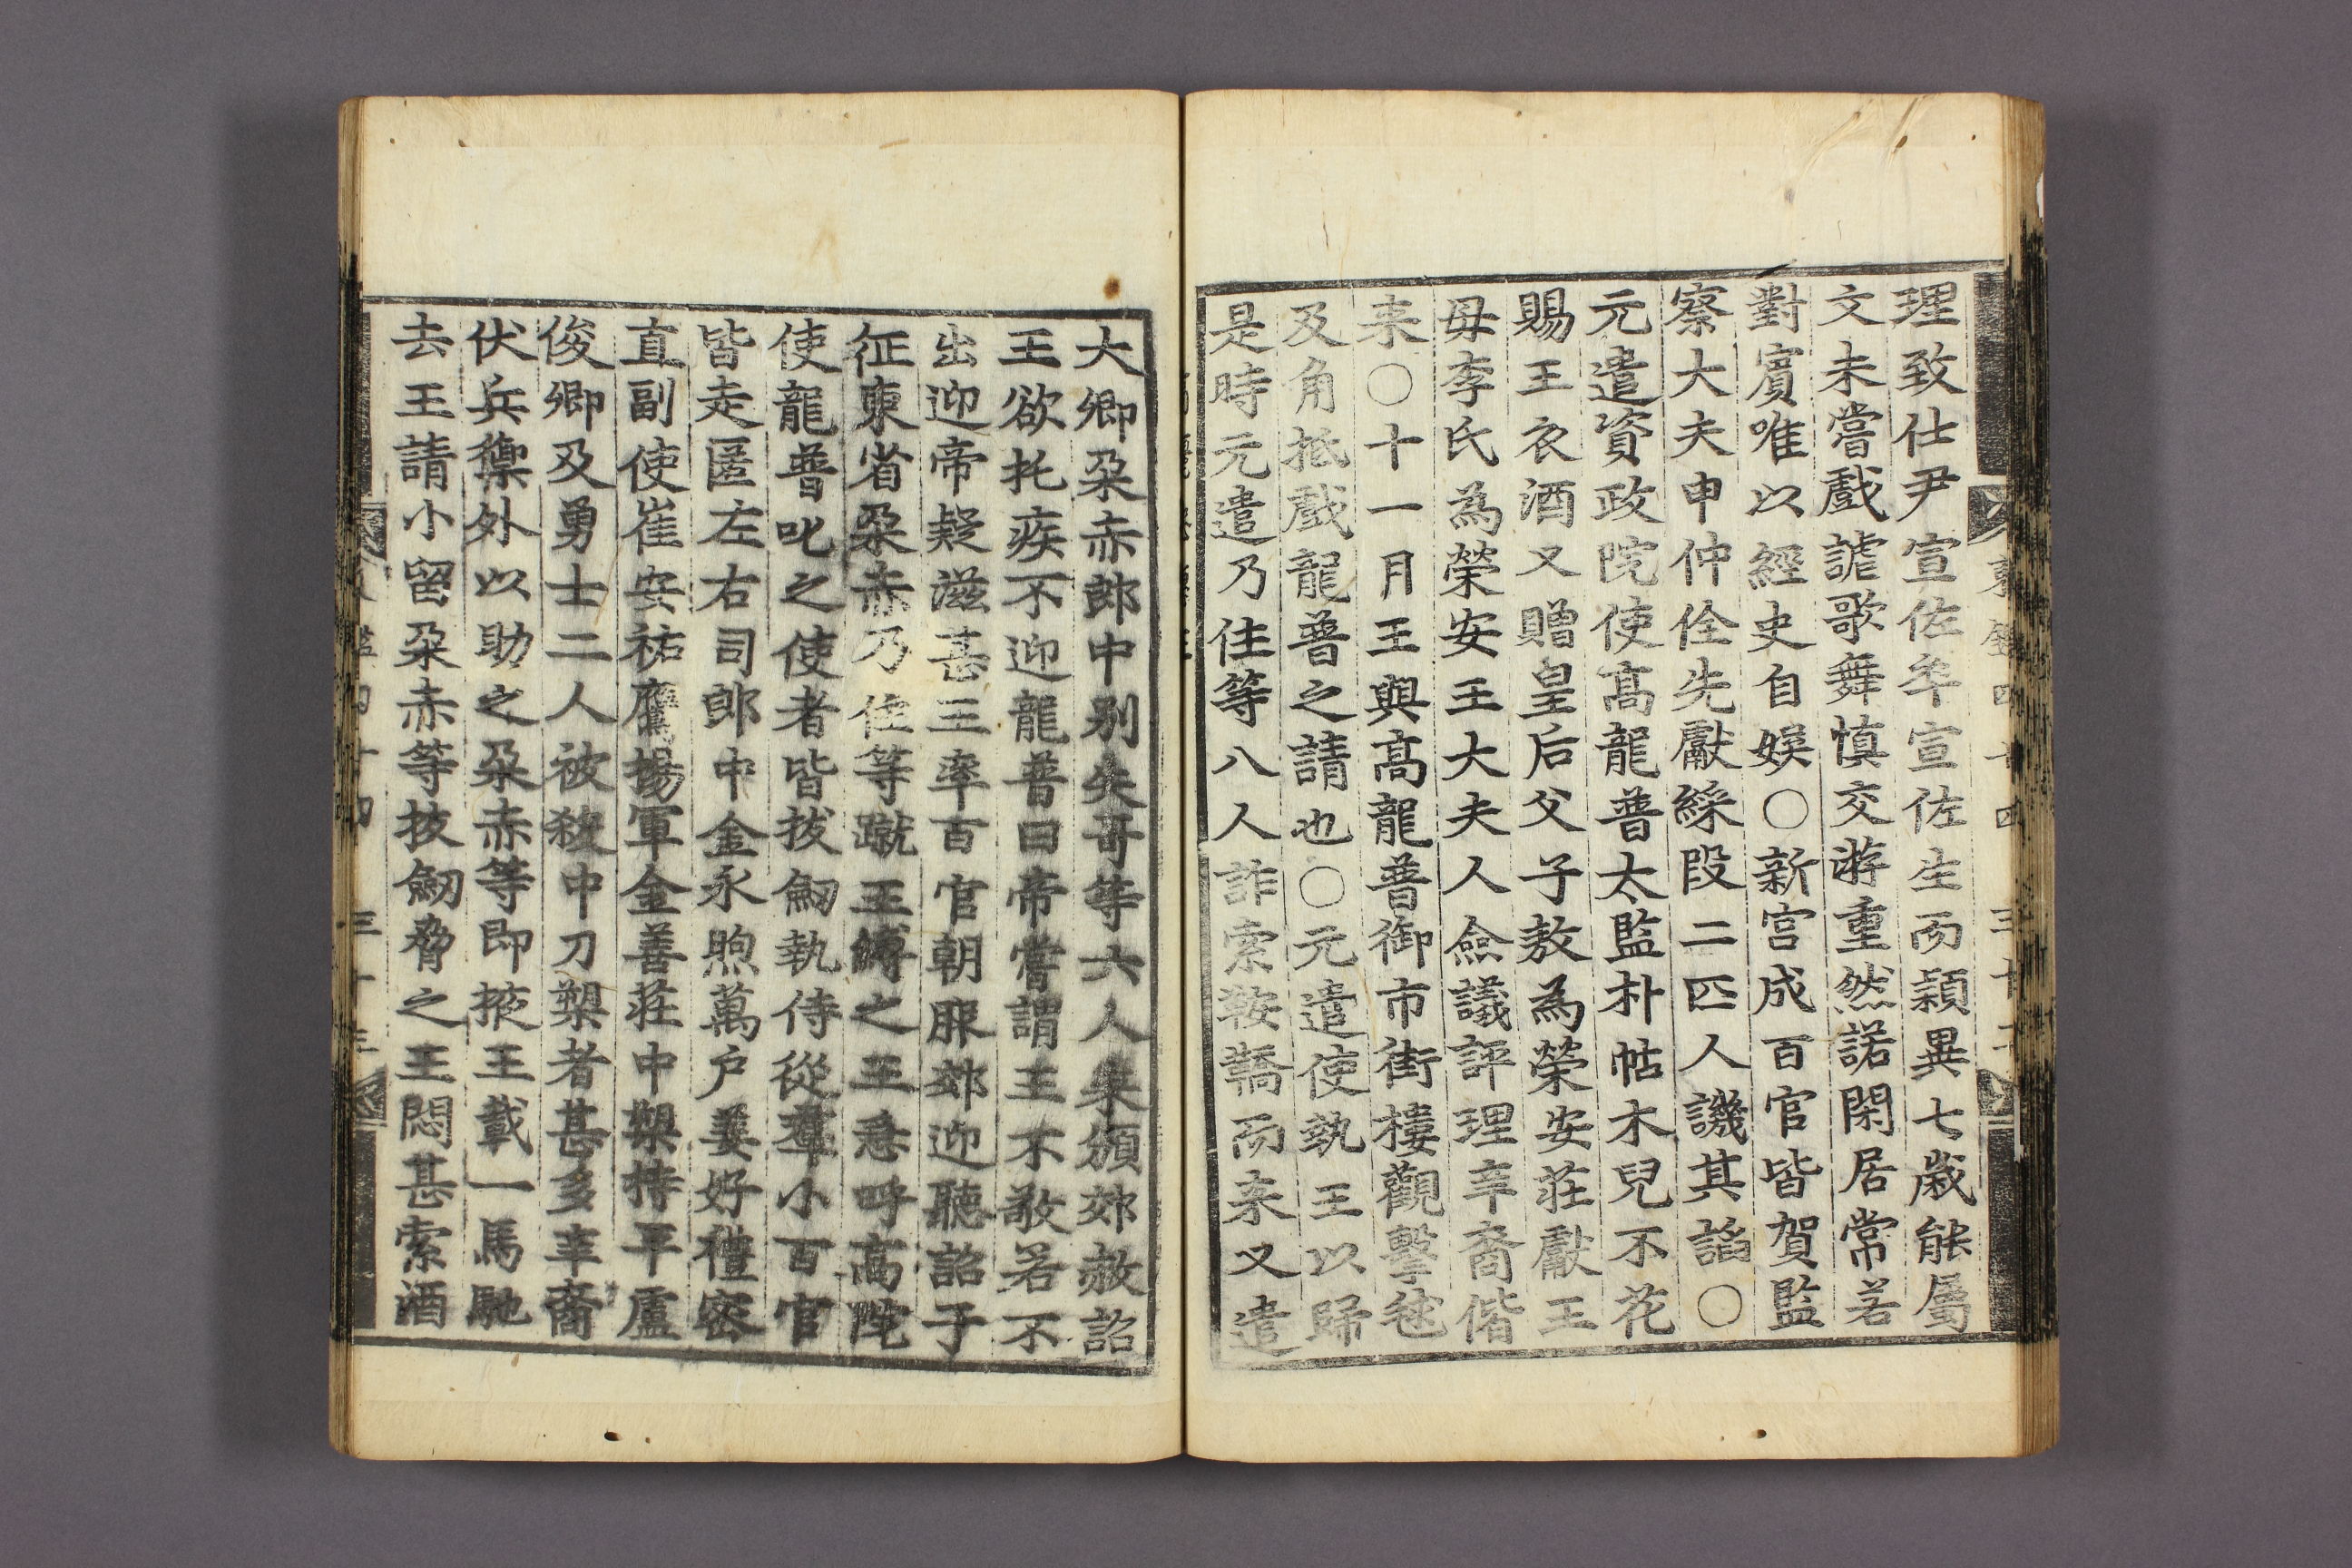 理致仕尹宣佐卒宣佐生而穎異七歲能屬
文未嘗戲謔歌舞愼交游重然諾閑居常若
對賓唯以經史自娛○新宮成百官皆賀監
察大夫申仲佺先獻綵段二匹人譏其謟○
元遣資政院使高龍普太監朴帖木兒不花
賜王衣酒又贈皇后父子敖爲榮安莊獻王
母李氏爲榮安王大夫人僉議評理辛裔偕
来○十一月王與高龍普御市街樓觀擊毬
及角抵戲龍普之請也○元遣使執王以歸
是時元遣乃住等八人詐索鞍轎而来又遣
大卿朶赤郎中別失哥等六人来頒郊赦詔
王欲托疾不迎龍普曰帝嘗謂王不敬若不
出迎帝疑滋甚王率百官朝服郊迎聽詔于
征東省朶赤乃住等蹴王縛之王急呼高院
使龍普叱之使者皆拔劒執侍從羣小百官
皆走匿左右司郎中金永煦萬戶姜好禮密
直副使崔安祐鷹揚軍金善莊中槊持平盧
俊卿及勇士二人被殺中刀槊者甚多辛裔
伏兵禦外以助之朶赤等即掖王載一馬馳
去王請小留朶赤等拔劒脅之王悶甚索酒